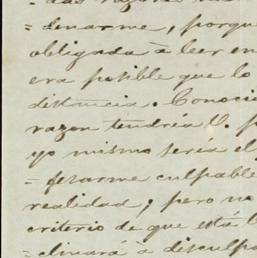 -das razones
-denarme, porque
obligada à leer en
era posible que lo
distancia. Conoci
razon tendria V. p
yo mismo seria el
-fesarme culpable
realidad; pero no
criterio de que está
-clinará à disculpa